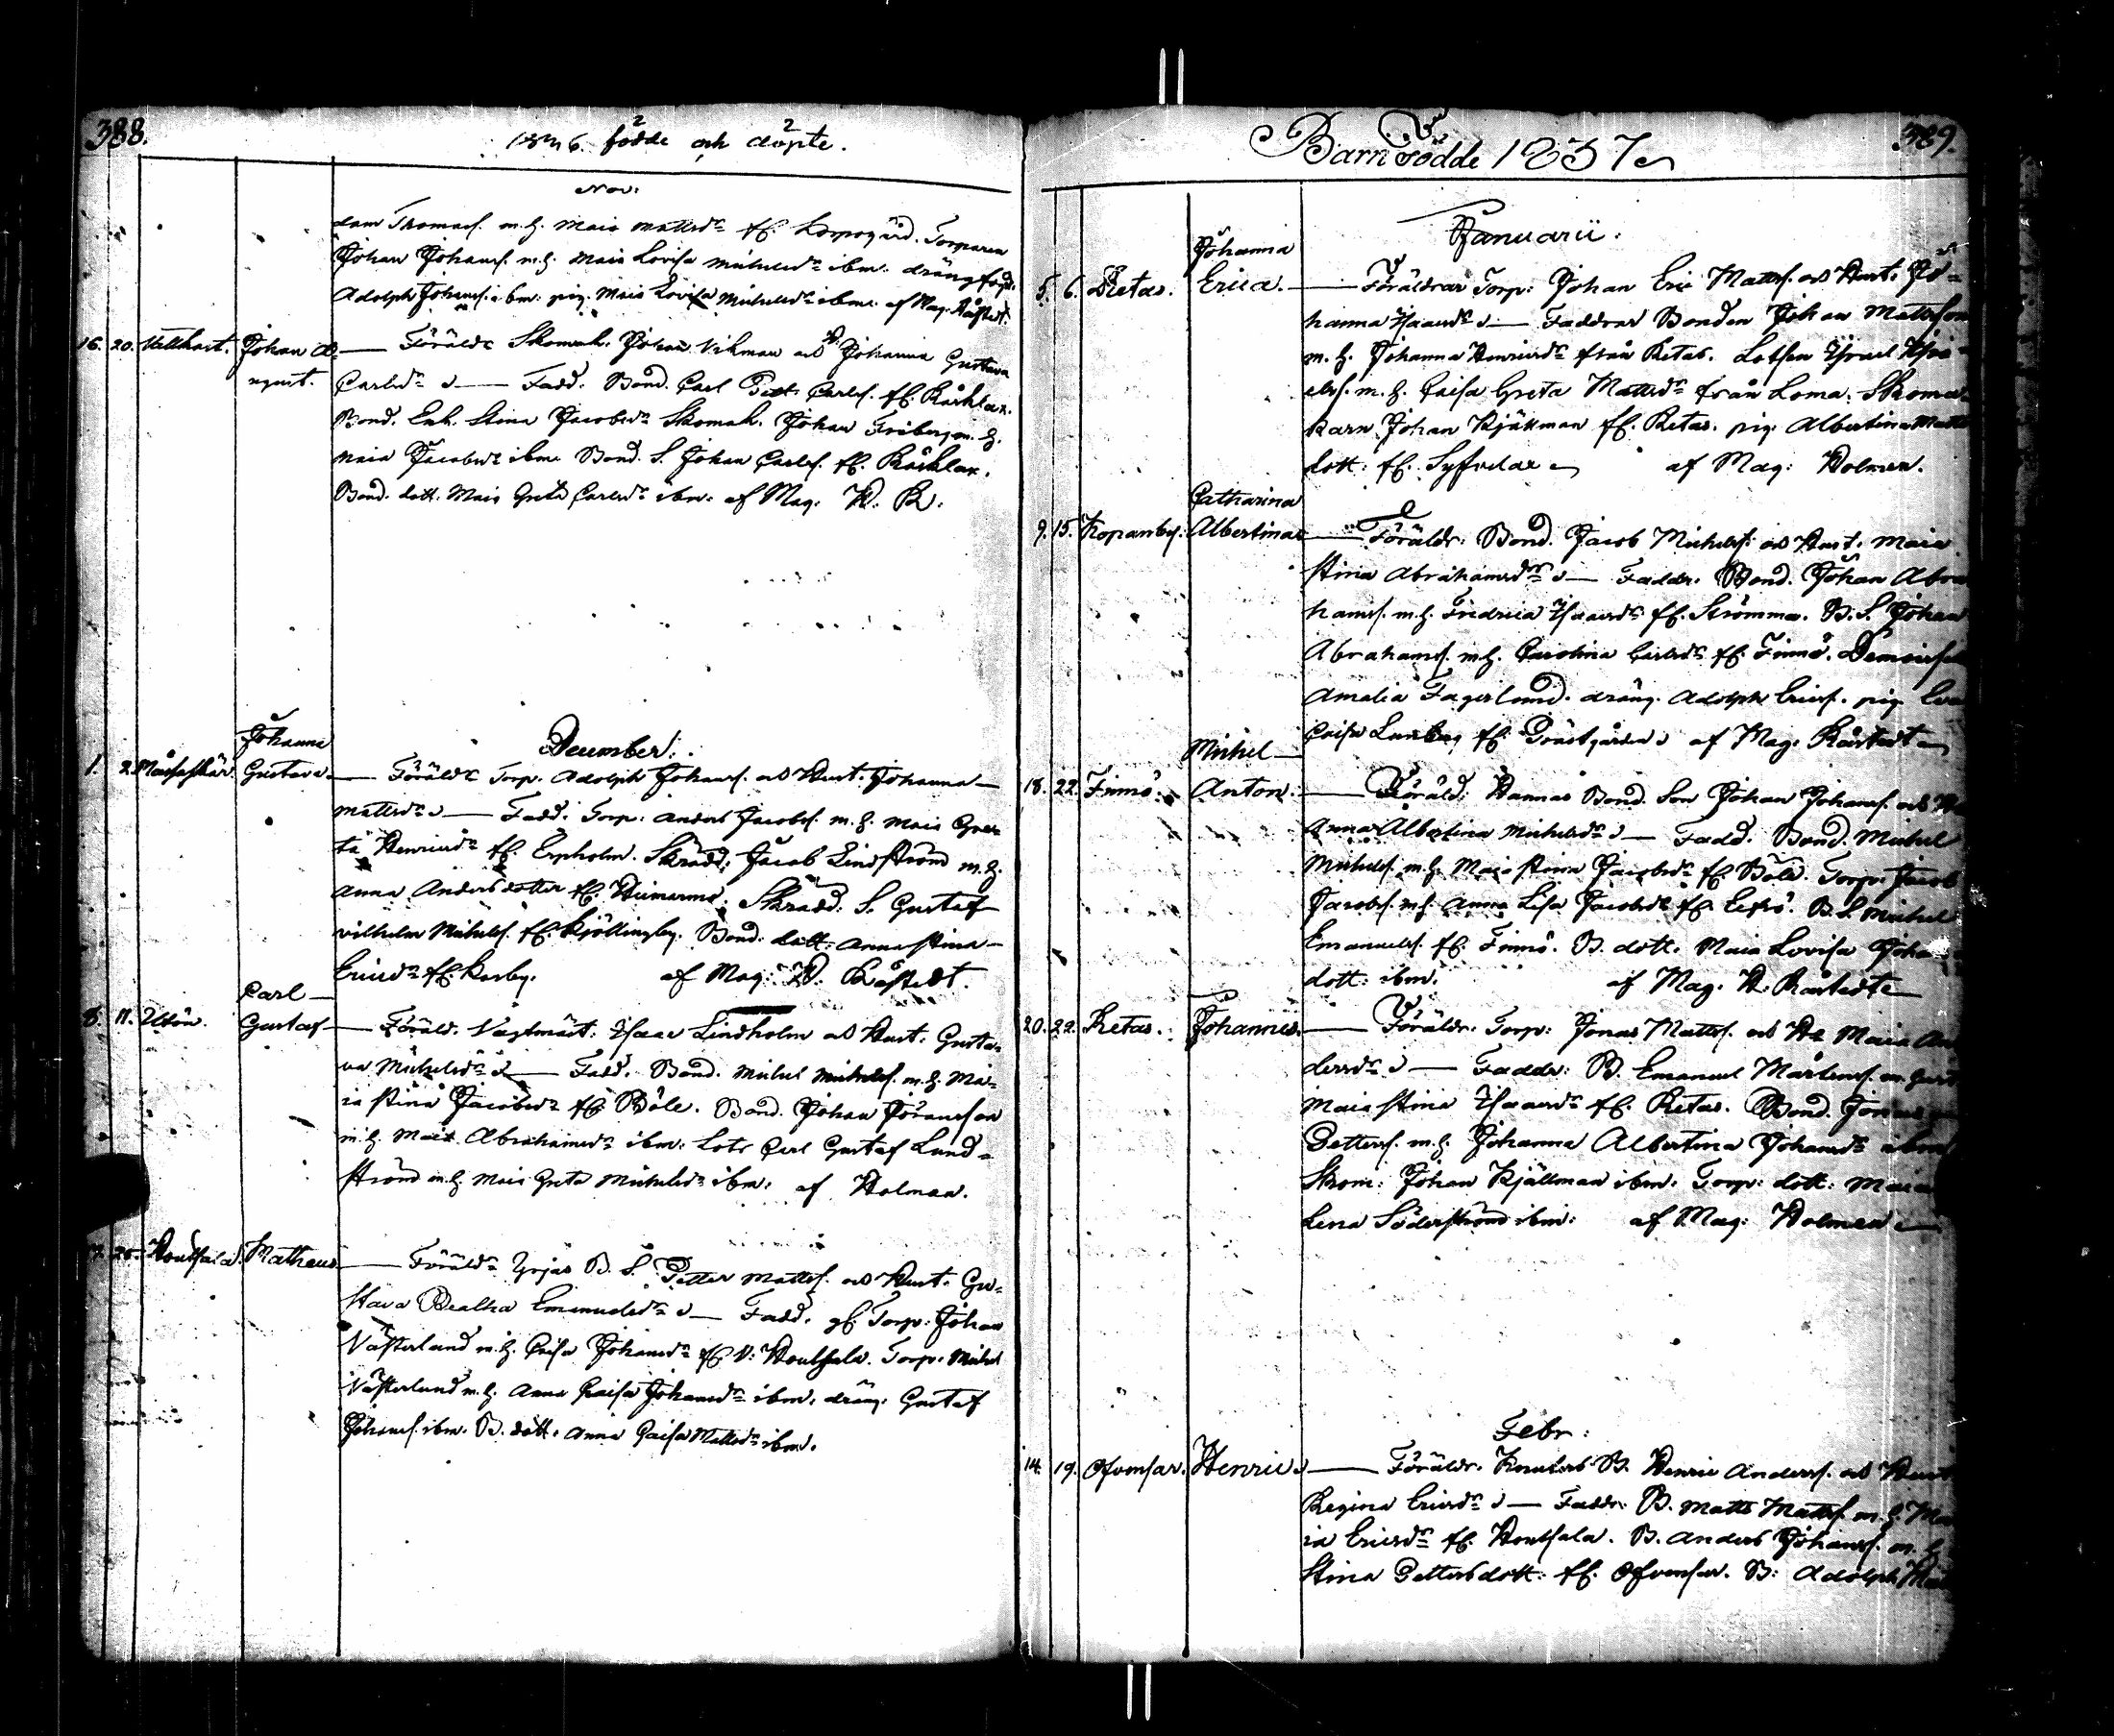 388.
1836 födde och döpte.
Nov:
dam Thomass. m.h. Maia Mattsdr fl. Korpogård. Torparen
Johan Johanss. m.h. Maia Lovisa Michelsdr ibm. dräng
Adolph Johanss. ibm. pig. Maia Lovisa Michelsdr ibm. af Mag. Råstedt.
16. 20. Johan A
ugust. — Föräldr Skomak. Johan Vikman och H Johanna Gustava
Carlsdr — Fadd. Bond. Carl Pett. Carlss. fl. Råcklax.
Bond. Enk. Stina Jacobsdr Skomak. Johan Friberg m.h.
Maia Jacobsdr ibm. Bond. S. Johan Carlss. fl. Råcklax.
Bond. dott. Maia Greta Carlsdr ibm. af Mag. H. R.
December.
1. 2. Johanna
Gustava — Föräldr Torp. Adolph Johanss. och Hust. Johanna
Mattsdr — Fadd. Torp. Anders Jacobss. m.h. Maia Gre-
ta Henricsdr fl. Erpholm. Skrädd. Jacob Lindström m.h.
Anna Andersdotter fl. Skrädd. S. Gustaf
Vilhelm Michelss. fl. Kjöllingby. Bond. dott. Anna Stina
Ericsdr fl. Korby. af Mag. H. Råstedt.
8. 11. Utön. Carl
Gustaf — Föräld. Vagtmäst. Isaac Lindholm och Hust. Gusta-
va Michelsdr — Fadd. Bond. Michel Michelss. m.h. Ma-
ia Stina Jacobsdr fl. Böle. Bond. Johan Göransson
m.h. Maia Abrahamsdr ibm. Lots Carl Gustaf Lund-
ström m.h. Maia Greta Michelsdr ibm. af Holman.
25. Houtsala. Matheus — Föräldr Yrjas B. S. Petter Mattss. och Hust. Gu-
stava Beatha Emanuelsdr — Fadd. gl. Torp. Johan
Västerlund m.h. Caisa Johansdr fl. V. Houtsala. Torp. Michel
Västerlund m.h. Anna Caisa Johansdr ibm. dräng. Gustaf
Johanss. ibm. B. dott. Anna Caisa Mattsdr ibm.
389.
Barn Födde 1837
Januarii.
5. 6. Retas. Johanna
Erica. — Föräldrar Torp. Johan Eric Mattss. och Hust. Jo-
hanna Isaacsdr — Faddrar Bonden Johan Mattsson
m.h. Johanna Henricsdr från Retas. Lotsen Israel Isra-
elss. m.h. Caisa Greta Mattsdr från Loma. Skoma-
karn Johan Kjällman fl. Retas. pig. Albertina Matts
dott. fl. af Mag. Holmen.
9. 15. Kopanby. Catharina
Albertina — Föräldr. Bond. Jacob Michelss. och Hust. Maia
Stina Abrahamsdr — Faddr. Bond. Johan Abra
hamss. m.h. Fredrica Isaacsdr fl. Strömma. B. S. Johan
Abrahamss. m.h. Carolina Carlsdr fl. Finnö.
Amalia Fagerlund. dräng. Adolph Ericss. pig. Eva
Caisa Lundberg fl. Prästgården af Mag. Råstedt
18. 22. Finnö. Michel
Anton. — Föräld. Hannas Bond. Son Johan Johanss. och H
Anna Albertina Michelsdr — Fadd. Bond. Michel
Michelss. m.h. Maia Stina Jacobsdr fl. Böle. Torp. Jacob
Jacobss. m.h. Anna Lisa Jacobsdr fl. B. S. Michel
Emanuelss. fl. Finnö. B. dott. Maia Lovisa Joha
dott. ibm. af Mag. H. Råstedt
20. 22. Retas. Johannes. — Föräldr. Torp. Jonas Mattss. och H Maia An
dersdr — Faddr. B. Emanuel Mårtenss. m.
Maia Stina Isaacsdr fl. Retas. Bond. Jonas
Petterss. m.h. Johanna Albertina Johansdr ibm
Skom. Johan Kjällman ibm. Torp. dott. Maia
Lena Söderström ibm. af Mag. Holmen
Febr:
14. 19. Ofvensar. Henric — Föräldr. Knuters B. Henric Anderss. och Hust
Regina Ericsdr — Faddr. B. Matts Mattss. m.h. Ma
ia Ericsdr fl. Houtsala. B. Anders Johanss. m.h.
Stina Pettersdott. fl. Ofvensar. B. Adolph